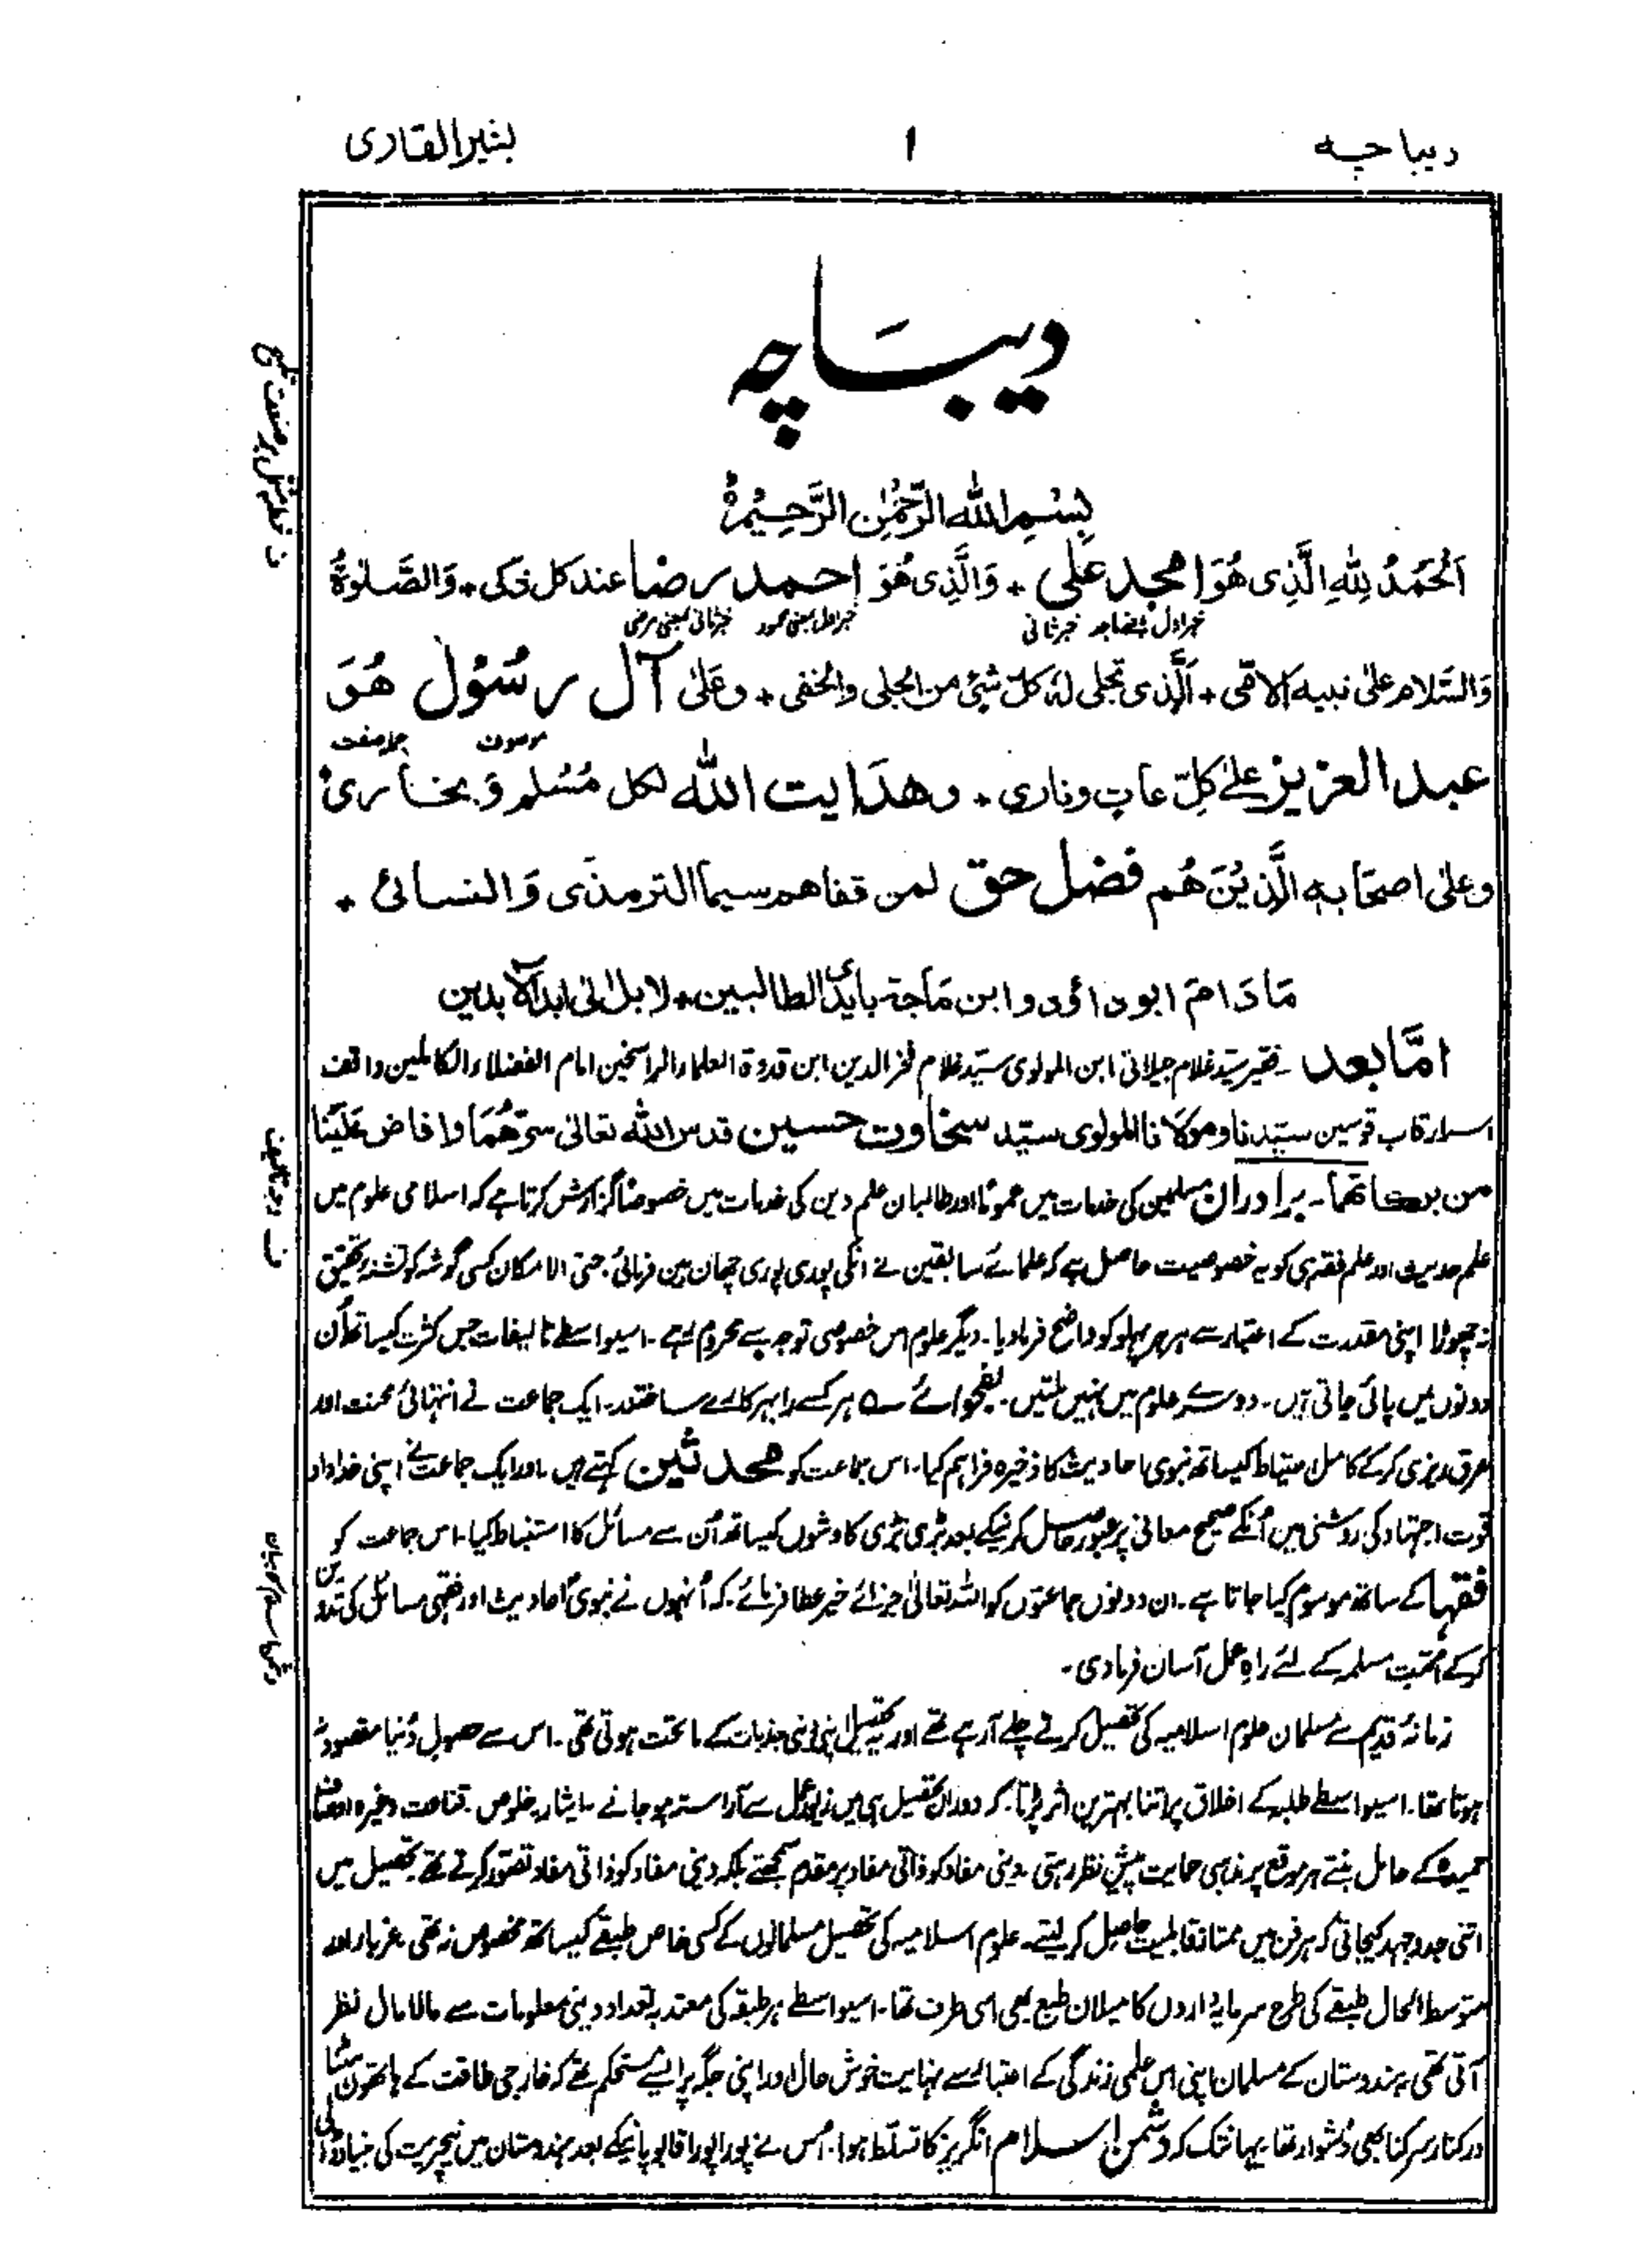 دیباچہ
۱
بشیرالقاری
دیبَاچہ
بِسْمِ اللهِ الرَّحْمٰنِ الرَّحِیْمِ
اَلْحَمْدُ لِلّٰهِ الَّذِی هُوَ امجد علی + وَالَّذِی هُوَ احمد رضا عند کل ذکی + وَالصَّلٰوةُ
خبر اول خبر ثانی خبر اول بمعنی محمود خبر ثانی بمعنی مرضی
وَالسَّلام علیٰ نبیه الامی + اَلَّذی تجلی لهٗ کلّ شیئ من الجلی والخفی + وعَلیٰ آل رسُوْل هُوَ
موصوف جملہ صفت
عبد العزیز علےٰ کلّ عابٍ وناری + وهدَایت الله لکل مُسْلم وَبخاری
وعلیٰ اصحَابه الَّذِیْنَ هُم فضل حق لمن قفاهم سیما الترمذی وَالنسائی +
مَادَامَ ابوداؤد وابن مَاجة بایدی الطالبین + لا بل الی ابد الآبدین
امَّا بعد فقیر سیّد غلام جیلانی ابن المولوی سیّد غلام فخر الدین ابن قدوة العلماء الراسخین امام الفضلاء الکاملین واقف
اسرار قاب قوسین سیّدنا ومولانا المولوی سیّد سخاوت حسین قدس الله تعالیٰ سرّهُمَا وافاض عَلَیْنَا
من برکاتهما۔ برادران مسلمین کی خدمات میں عمومًا اور طالبان علم دین کی خدمات میں خصوصًا گزارش کرتا ہے کہ اسلامی علوم میں
علم حدیث اور علم فقہ ہی کو یہ خصوصیت حاصل ہے کہ علمائے سابقین نے انکی پوری پوری چھان بین فرمائی۔ حتی الامکان کسی گوشہ کو تشنۂ تحقیق
نہ چھوڑا اپنی مقدرت کے اعتبار سے ہر ہر پہلو کو واضح فرما دیا۔ دیگر علوم اس خصوصی توجہ سے محروم رہے۔ اسیواسطے تالیفات جس کثرت کیساتھ اُن
دونوں میں پائی جاتی ہیں۔ دوسرے علوم میں نہیں ملتیں۔ بفحوائے ؎ ہر کسے را بہر کارے ساختند۔ ایک جماعت نے انتہائی محنت اور
عرق ریزی کرکے کامل احتیاط کیساتھ نبوی احادیث کا ذخیرہ فراہم کیا۔ اس جماعت کو محدثین کہتے ہیں۔ اور ایک جماعت نے اپنی خداداد
قوت اجتہاد کی روشنی میں اُنکے صحیح معانی پر عبور حاصل کرنیکے بعد بڑی بڑی کاوشوں کیساتھ اُن سے مسائل کا استنباط کیا۔ اس جماعت کو
فقہا کے ساتھ موسوم کیا جاتا ہے۔ ان دونوں جماعتوں کو اللہ تعالیٰ جزائے خیر عطا فرمائے۔ کہ اُنہوں نے نبوی احادیث اور فقہی مسائل کی تدوین
کرکے اُمّت مسلمہ کے لئے راہِ عمل آسان فرما دی۔
زمانۂ قدیم سے مُسلمان علوم اسلامیہ کی تحصیل کرتے چلے آرہے تھے اور یہ تحصیل اپنے دینی جذبات کے ماتحت ہوتی تھی۔ اس سے حصولِ دُنیا مقصود نہ
ہوتا تھا۔ اسیواسطے طلبہ کے اخلاق پر اتنا بہترین اثر پڑتا۔ کہ دوران تحصیل ہی میں زیورِ عمل سے آراستہ ہو جاتے۔ ایثار۔ خلوص۔ قناعت وغیرہ اوصاف
حمیدہ کے حامل بنتے ہر موقع پر مذہبی حمایت پیشِ نظر رہتی۔ دینی مفاد کو ذاتی مفاد پر مقدم سمجھتے بلکہ دینی مفاد کو ذاتی مفاد تصوّر کرتے تھے۔ تحصیل میں
اتنی جدوجہد کیجاتی کہ ہر فن میں ممتاز قابلیت حاصل کر لیتے۔ علوم اسلامیہ کی تحصیل مسلمانوں کے کسی خاص طبقے کیساتھ مخصوص نہ تھی۔ غرباء اور
متوسط الحال طبقے کی طرح سرمایہ داروں کا میلان طبع بھی اسی طرف تھا۔ اسیواسطے ہر طبقہ کی معتد بہ تعداد دینی معلومات سے مالامال نظر
آتی تھی۔ ہندوستان کے مسلمان اپنی اس علمی زندگی کے اعتبار سے نہایت خوش حال اور اپنی جگہ پر ایسے مستحکم تھے کہ خارجی طاقت کے ہاتھوں ہٹنا
درکنار سرکنا بھی دُشوار تھا۔ یہانتک کہ دشمن اسلام انگریز کا تسلّط ہوا۔ اُس نے پورا پورا قابو پانیکے بعد ہندوستان میں نیچریت کی بنیاد ڈالی
ف وجہ تالیف